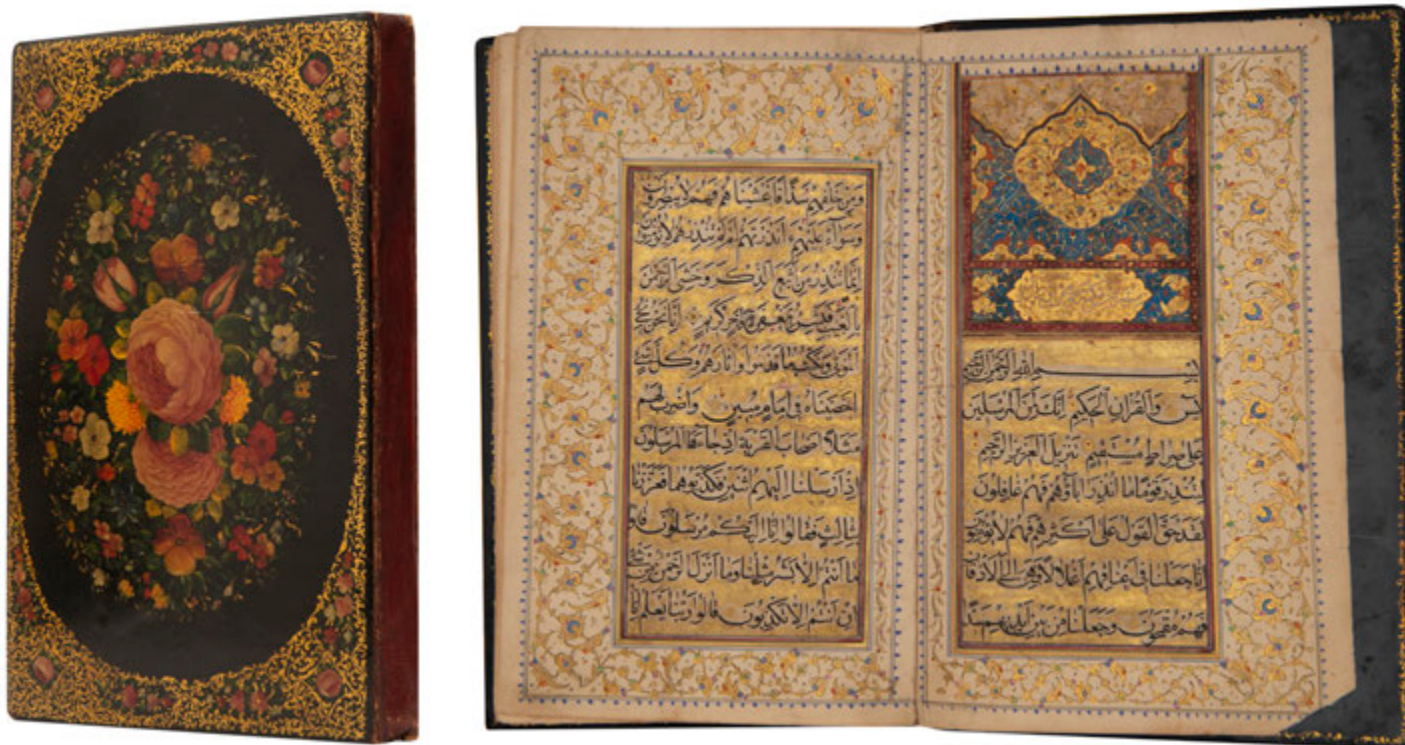 بسم الله الرحمن الرحيم
يس والقرآن الحكيم انك لمن المرسلين
على صراط مستقيم تنزيل العزيز الرحيم
لتنذر قوما ما انذر آباؤهم فهم غافلون
لقد حق القول على اكثرهم فهم لا يؤمنون
انا جعلنا في اعناقهم اغلالا فهي الى الاذقان
فهم مقمحون وجعلنا من بين ايديهم سدا
ومن خلفهم سدا فاغشيناهم فهم لا يبصرون
وسوآء عليهم ءانذرتهم ام لم تنذرهم لا يؤمنون
انما تنذر من اتبع الذكر وخشى الرحمن
بالغيب فبشره بمغفرة واجر كريم انا نحن نحيي
الموتى ونكتب ما قدموا واثارهم وكل شيء
احصيناه في امام مبين واضرب لهم
مثلا اصحاب القرية اذ جاءها المرسلون
اذ ارسلنا اليهم اثنين فكذبوهما فعززنا
بثالث فقالوا انا اليكم مرسلون قالوا
ما انتم الا بشر مثلنا وما انزل الرحمن من شيء
ان انتم الا تكذبون قالوا ربنا يعلم انا